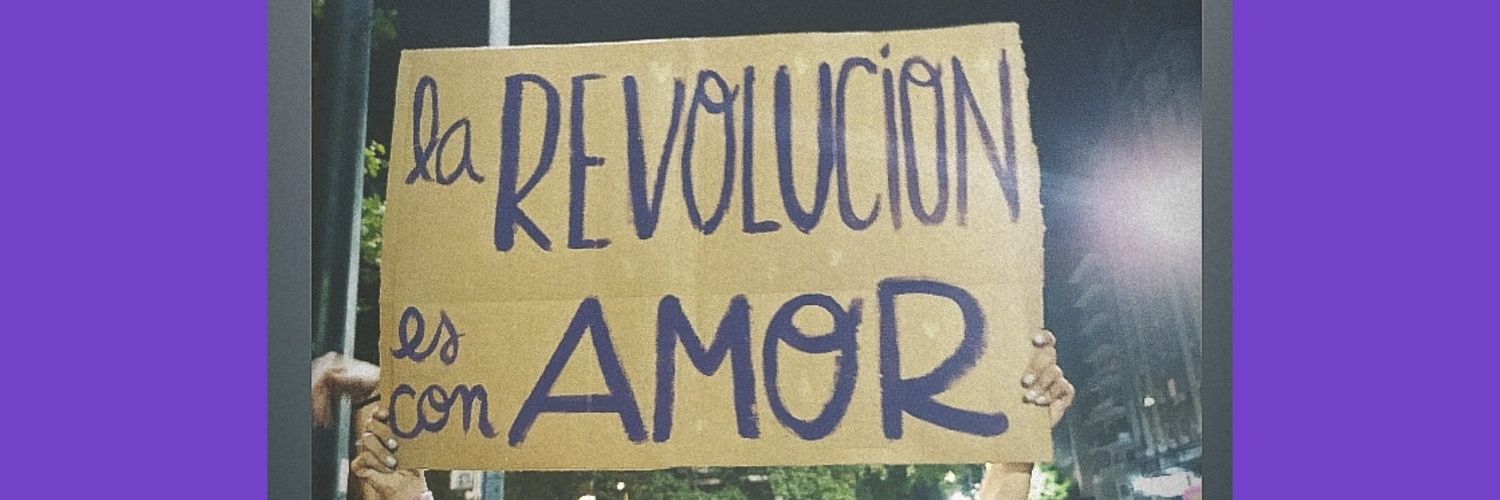 la REVOLUCION
es
con AMOR